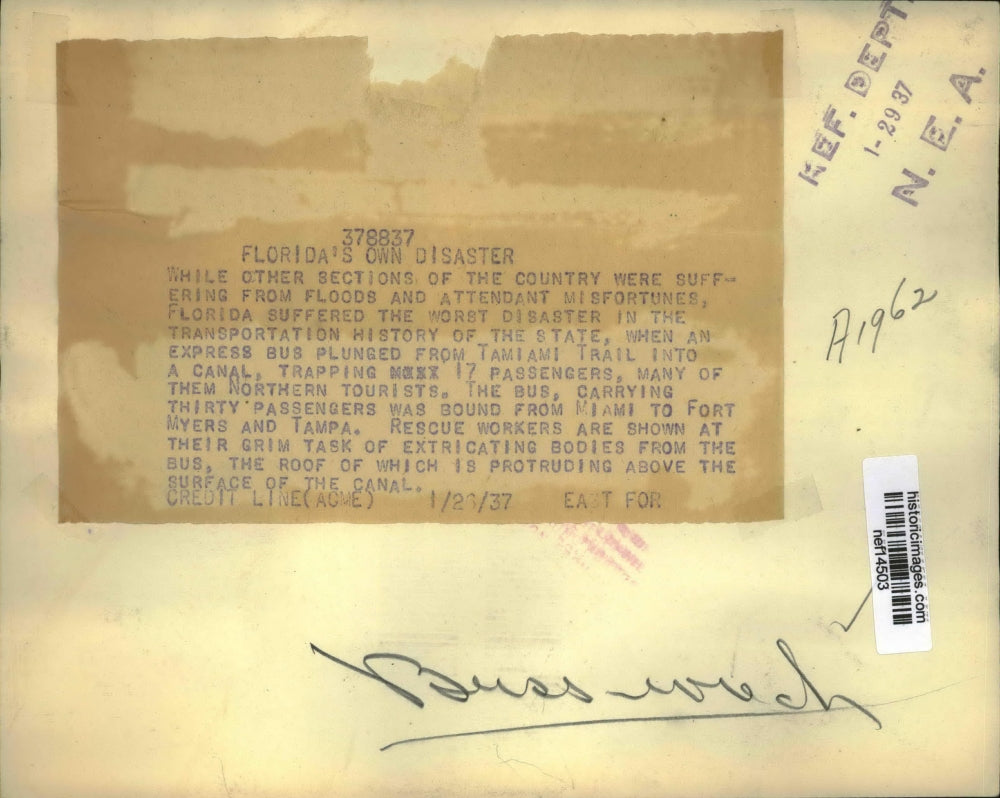 REF. DEPT
1-29 37
N. E. A.
378837
FLORIDA'S OWN DISASTER
WHILE OTHER SECTIONS OF THE COUNTRY WERE SUFF-
ERING FROM FLOODS AND ATTENDANT MISFORTUNES,
FLORIDA SUFFERED THE WORST DISASTER IN THE
TRANSPORTATION HISTORY OF THE STATE, WHEN AN
EXPRESS BUS PLUNGED FROM TAMIAMI TRAIL INTO
A CANAL, TRAPPING 17 PASSENGERS, MANY OF
THEM NORTHERN TOURISTS. THE BUS, CARRYING
THIRTY PASSENGERS WAS BOUND FROM MIAMI TO FORT
MYERS AND TAMPA. RESCUE WORKERS ARE SHOWN AT
THEIR GRIM TASK OF EXTRICATING BODIES FROM THE
BUS, THE ROOF OF WHICH IS PROTRUDING ABOVE THE
SURFACE OF THE CANAL.
CREDIT LINE(ACME) 1/26/37 EAST FOR
A1962
historicimages.com
nef14503
Buss-wreck